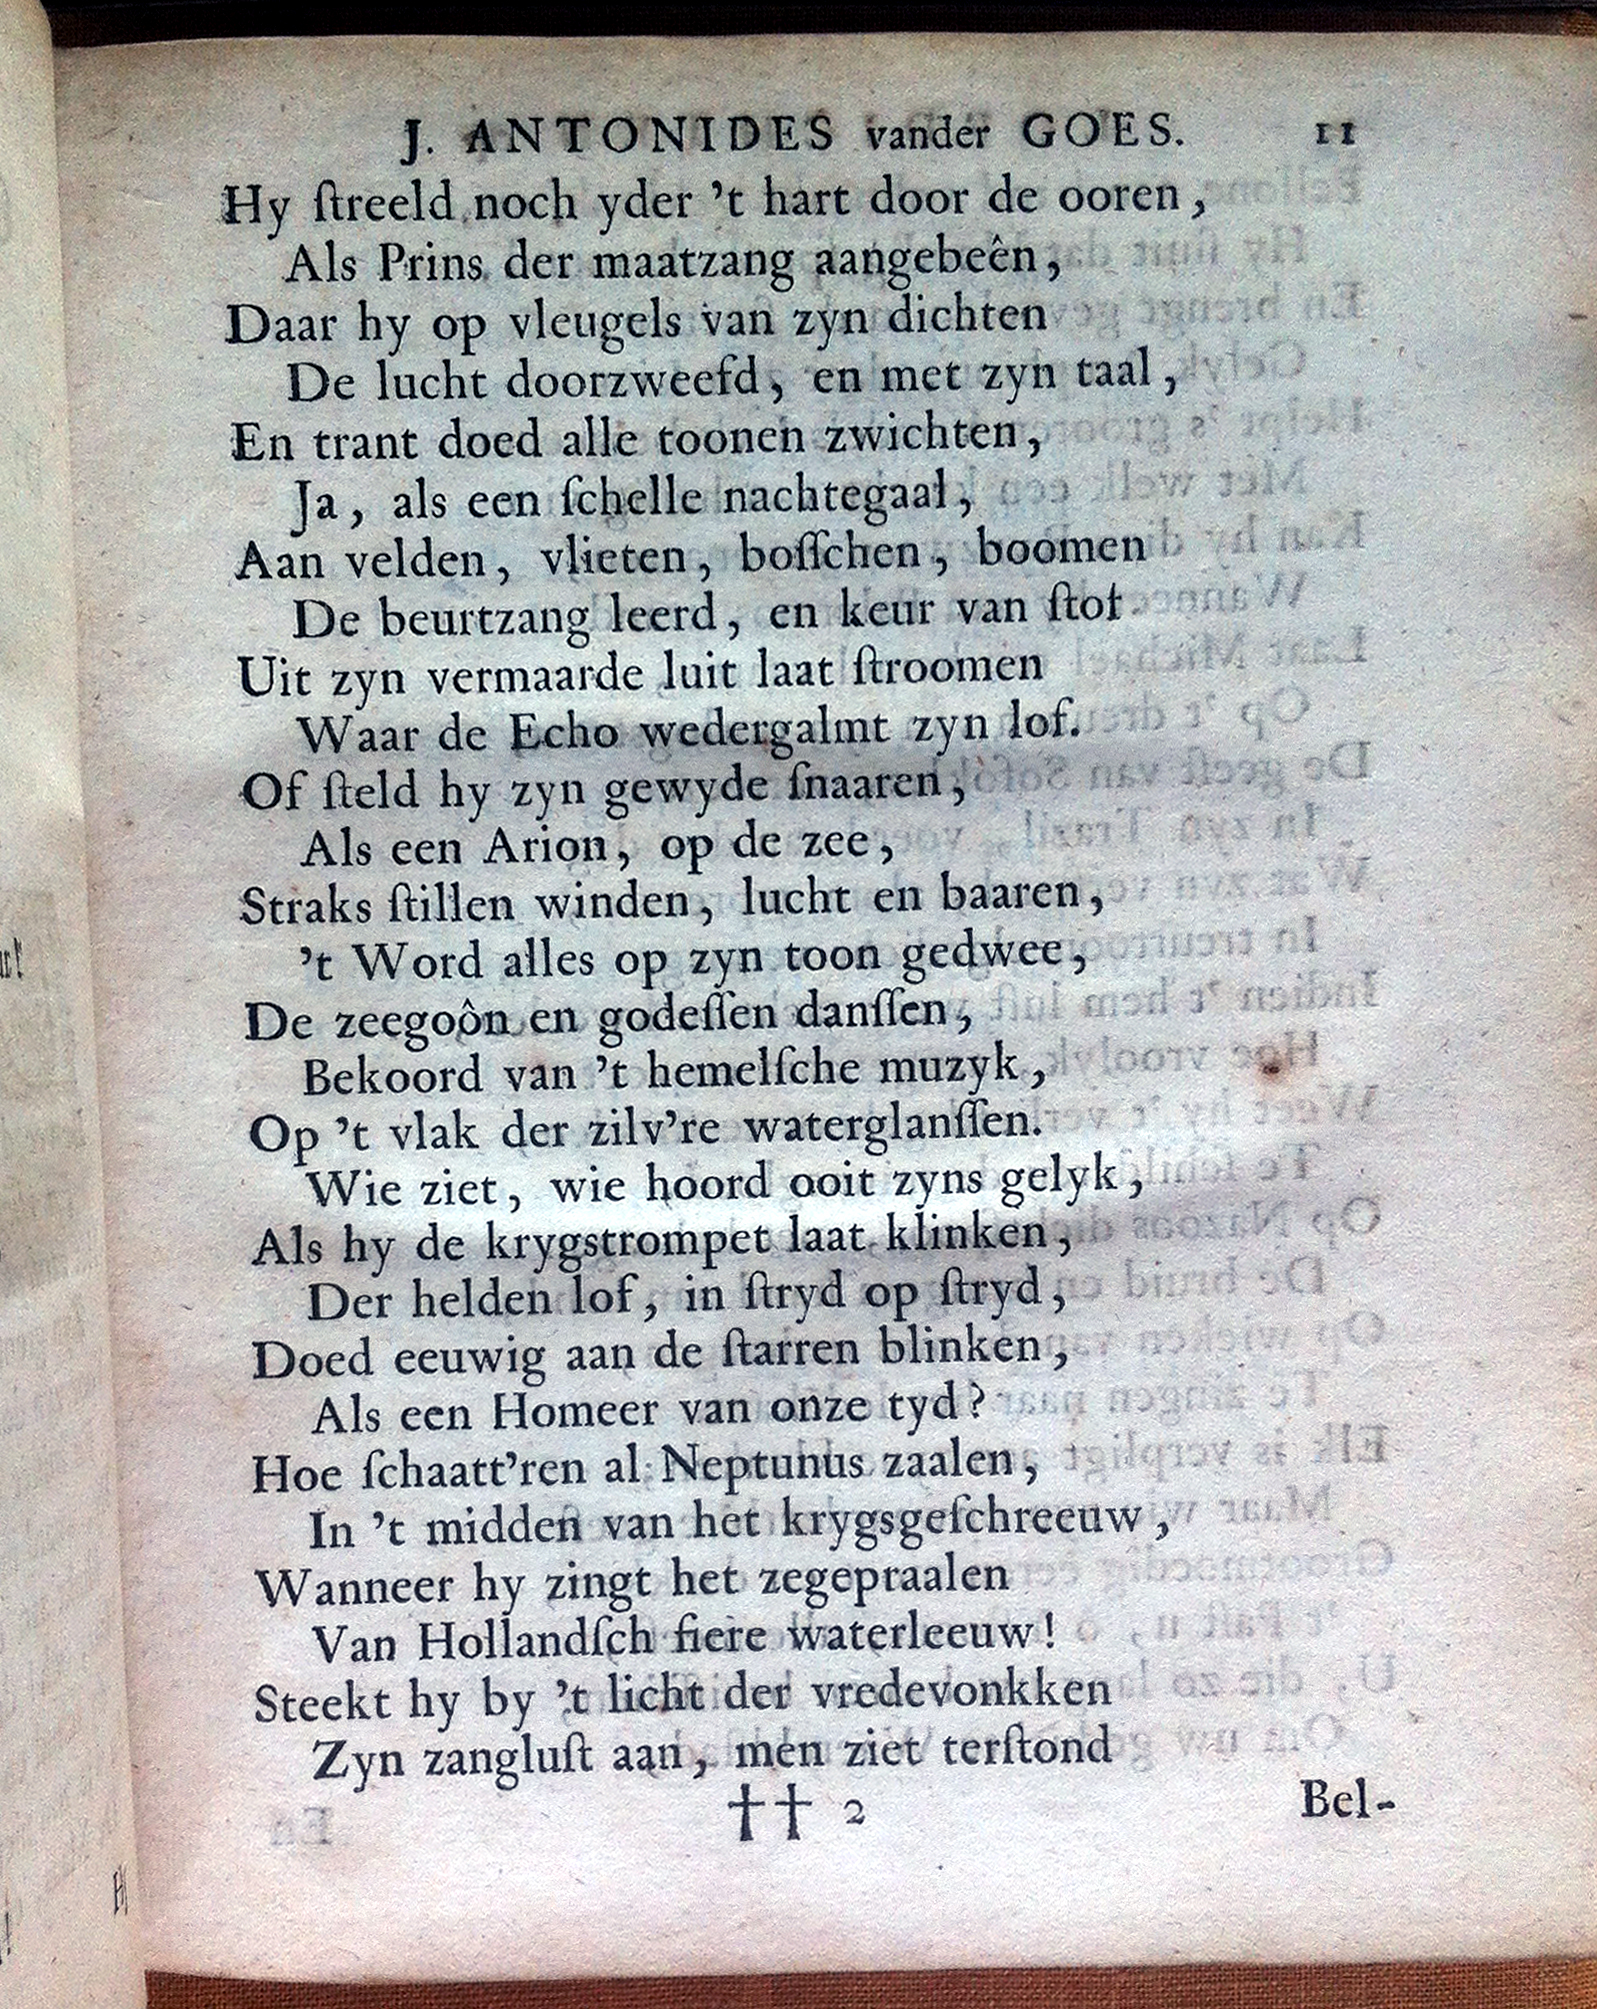 J. ANTONIDES vander GOES. 11
Hy ſtreeld noch yder 't hart door de ooren,
Als Prins der maatzang aangebeên,
Daar hy op vleugels van zyn dichten
De lucht doorzweefd, en met zyn taal,
En trant doed alle toonen zwichten,
Ja, als een ſchelle nachtegaal,
Aan velden, vlieten, boſſchen, boomen
De beurtzang leerd, en keur van ſtof
Uit zyn vermaarde luit laat ſtroomen
Waar de Echo wedergalmt zyn lof.
Of ſteld hy zyn gewyde ſnaaren,
Als een Arion, op de zee,
Straks ſtillen winden, lucht en baaren,
't Word alles op zyn toon gedwee,
De zeegoôn en godeſſen danſſen,
Bekoord van 't hemelſche muzyk,
Op 't vlak der zilv're waterglanſſen.
Wie ziet, wie hoord ooit zyns gelyk,
Als hy de krygstrompet laat klinken,
Der helden lof, in ſtryd op ſtryd,
Doed eeuwig aan de ſtarren blinken,
Als een Homeer van onze tyd?
Hoe ſchaatt'ren al Neptunus zaalen,
In 't midden van het krygsgeſchreeuw,
Wanneer hy zingt het zegepraalen
Van Hollandſch fiere waterleeuw!
Steekt hy by 't licht der vredevonkken
Zyn zangluſt aan, men ziet terſtond
†† 2 Bel-